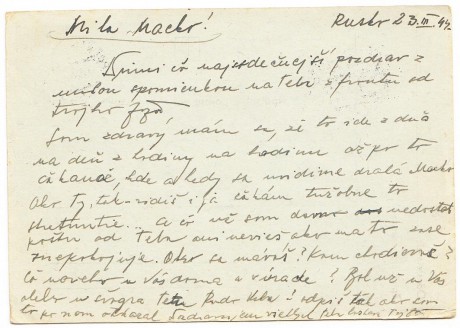 Milá Macko! Rusko 23.III.44.
Prijmi čo najsrdečnejší pozdrav z
milou spomienkou na Teba z frontu od
tvojho
Som zdravý mám sa, že to ide z dňa
na deň z hodiny na hodinu až po to
čakané, kde a kedy sa uvidíme drahá Macko
Ako Ty, tak-vidíš i ja čakám túžobne to
stretnutie... A čo už som dávno nedostal
poštu od Teba ani nevieš ako ma to zase
znepokojuje. Ako sa máváš? Kam chodievaš?
čo nového u Vás doma a v úrade? Bol už u Vás
alebo u švagra odpíš tak ako som
to po nom odkázal